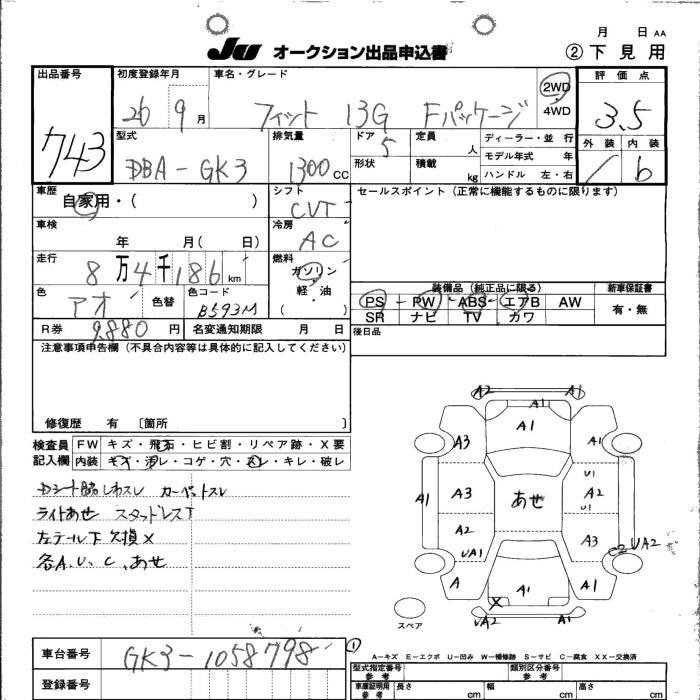 月 日 AA
JU オークション出品申込書 ②下見用
出品番号 初度登録年月 車名・グレード 2WD 4WD 評価点
743 26 9月 フィット 13G Fパッケージ 3.5
型式 排気量 ドア 定員 人 ディーラー・並行 外装 内装
DBA-GK3 1300cc 5 形状 積載 kg モデル年式 年 ハンドル 左・右 b
車歴 シフト セールスポイント(正常に機能するものに限ります)
自家用・( ) CVT
車検 冷房
年 月( 日) AC
走行 燃料
8万4千186km ガソリン 軽・油 ( )
色 色替 色コード 装備品(純正品に限る) 新車保証書
アオ B593M PS PW ABS エアB AW 有・無
SR ナビ TV カワ
R券 9,880円 名変通知期限 月 日 後日品
注意事項申告欄(不具合内容等は具体的に記入してください)
修復歴 有 〔箇所 〕
検査員 FW キズ・飛石・ヒビ割・リペア跡・X要
記入欄 内装 キズ・汚レ・コゲ・穴・スレ・キレ・破レ
Dシート脇しわスレ カーペットスレ
ライトあせ スタッドレスT
左テール下欠損X
各A、U、C、あせ
A2 A1 A1
A1
A3 A1
U1
A1 A3 あせ A2
U1
A2 A3 C2 UA2
UA1
A A1 A1
X
UA2 A1
スペア
車台番号 GK3-1058798 ①
A-キズ E-エクボ U-凹み W-補修跡 S-サビ C-腐食 XX-交換済
登録番号 型式指定番号 参考 類別区分番号 参考
車庫証明用 参考 長さ cm 幅 cm 高さ cm